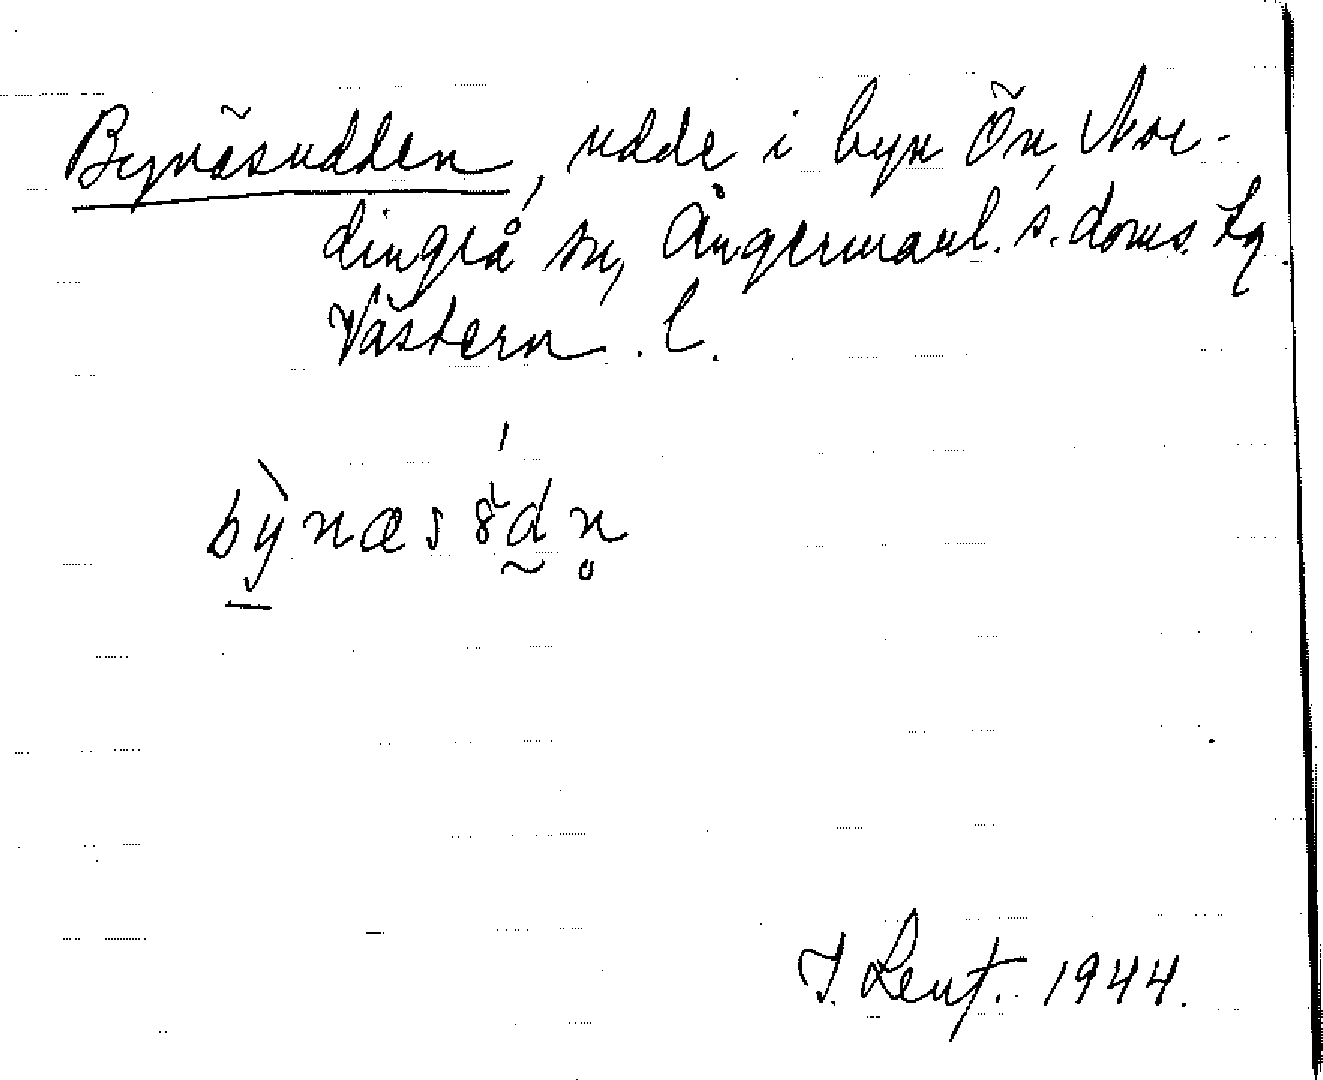 Bynäsudden, udde i byn Ön, Nor-
dingrå sn, Ångermanl. s. doms. tg
Västern. l.
bỳnæs8́d̰n̥
1944.